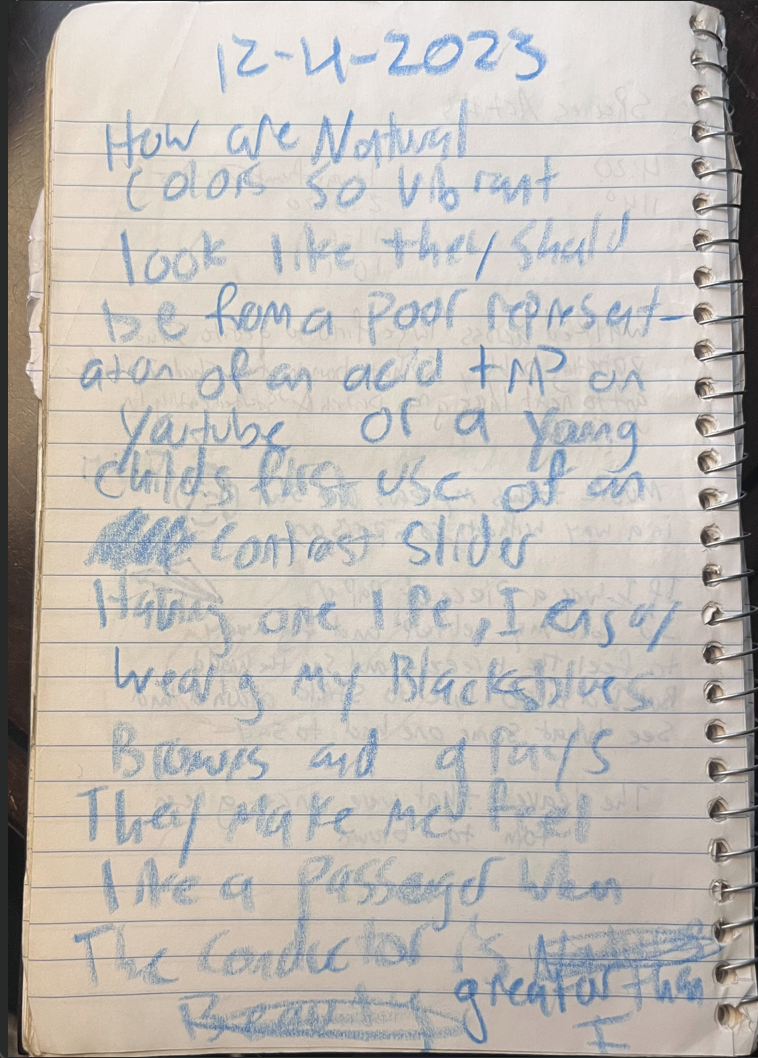 12-4-2023
How are Natural
Colors so vibrant
look like they Shuld
be from a poor represent-
aton of an acid trip on
Yautube or a young
childs first use of an
contrast slider
Having one life, I enjoy
wearing my Blacks blues
Browns and grays
They make me feel
like a passenger when
The conductor is
greator than
I